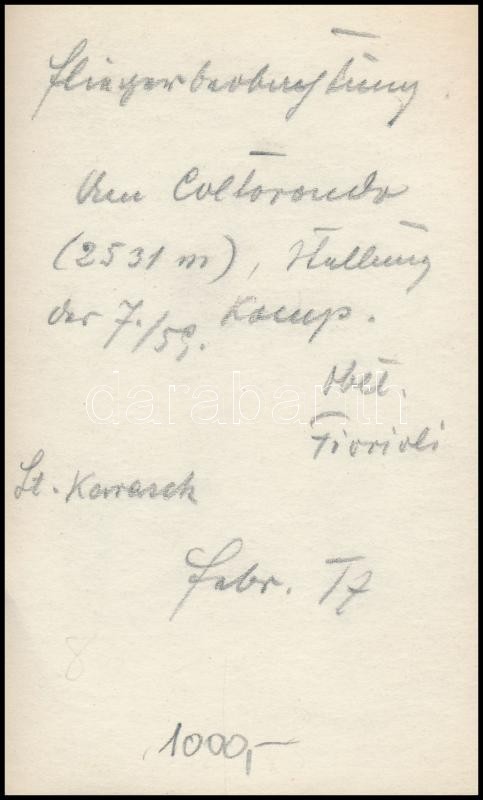 Fliegerbeobachtung
Am Coltorondo
(2531 m), Stellung
der 7./59. Komp.
Oblt.
Fiorioli
Lt. Karasek
Febr. 17
8
1000,-
darabanth